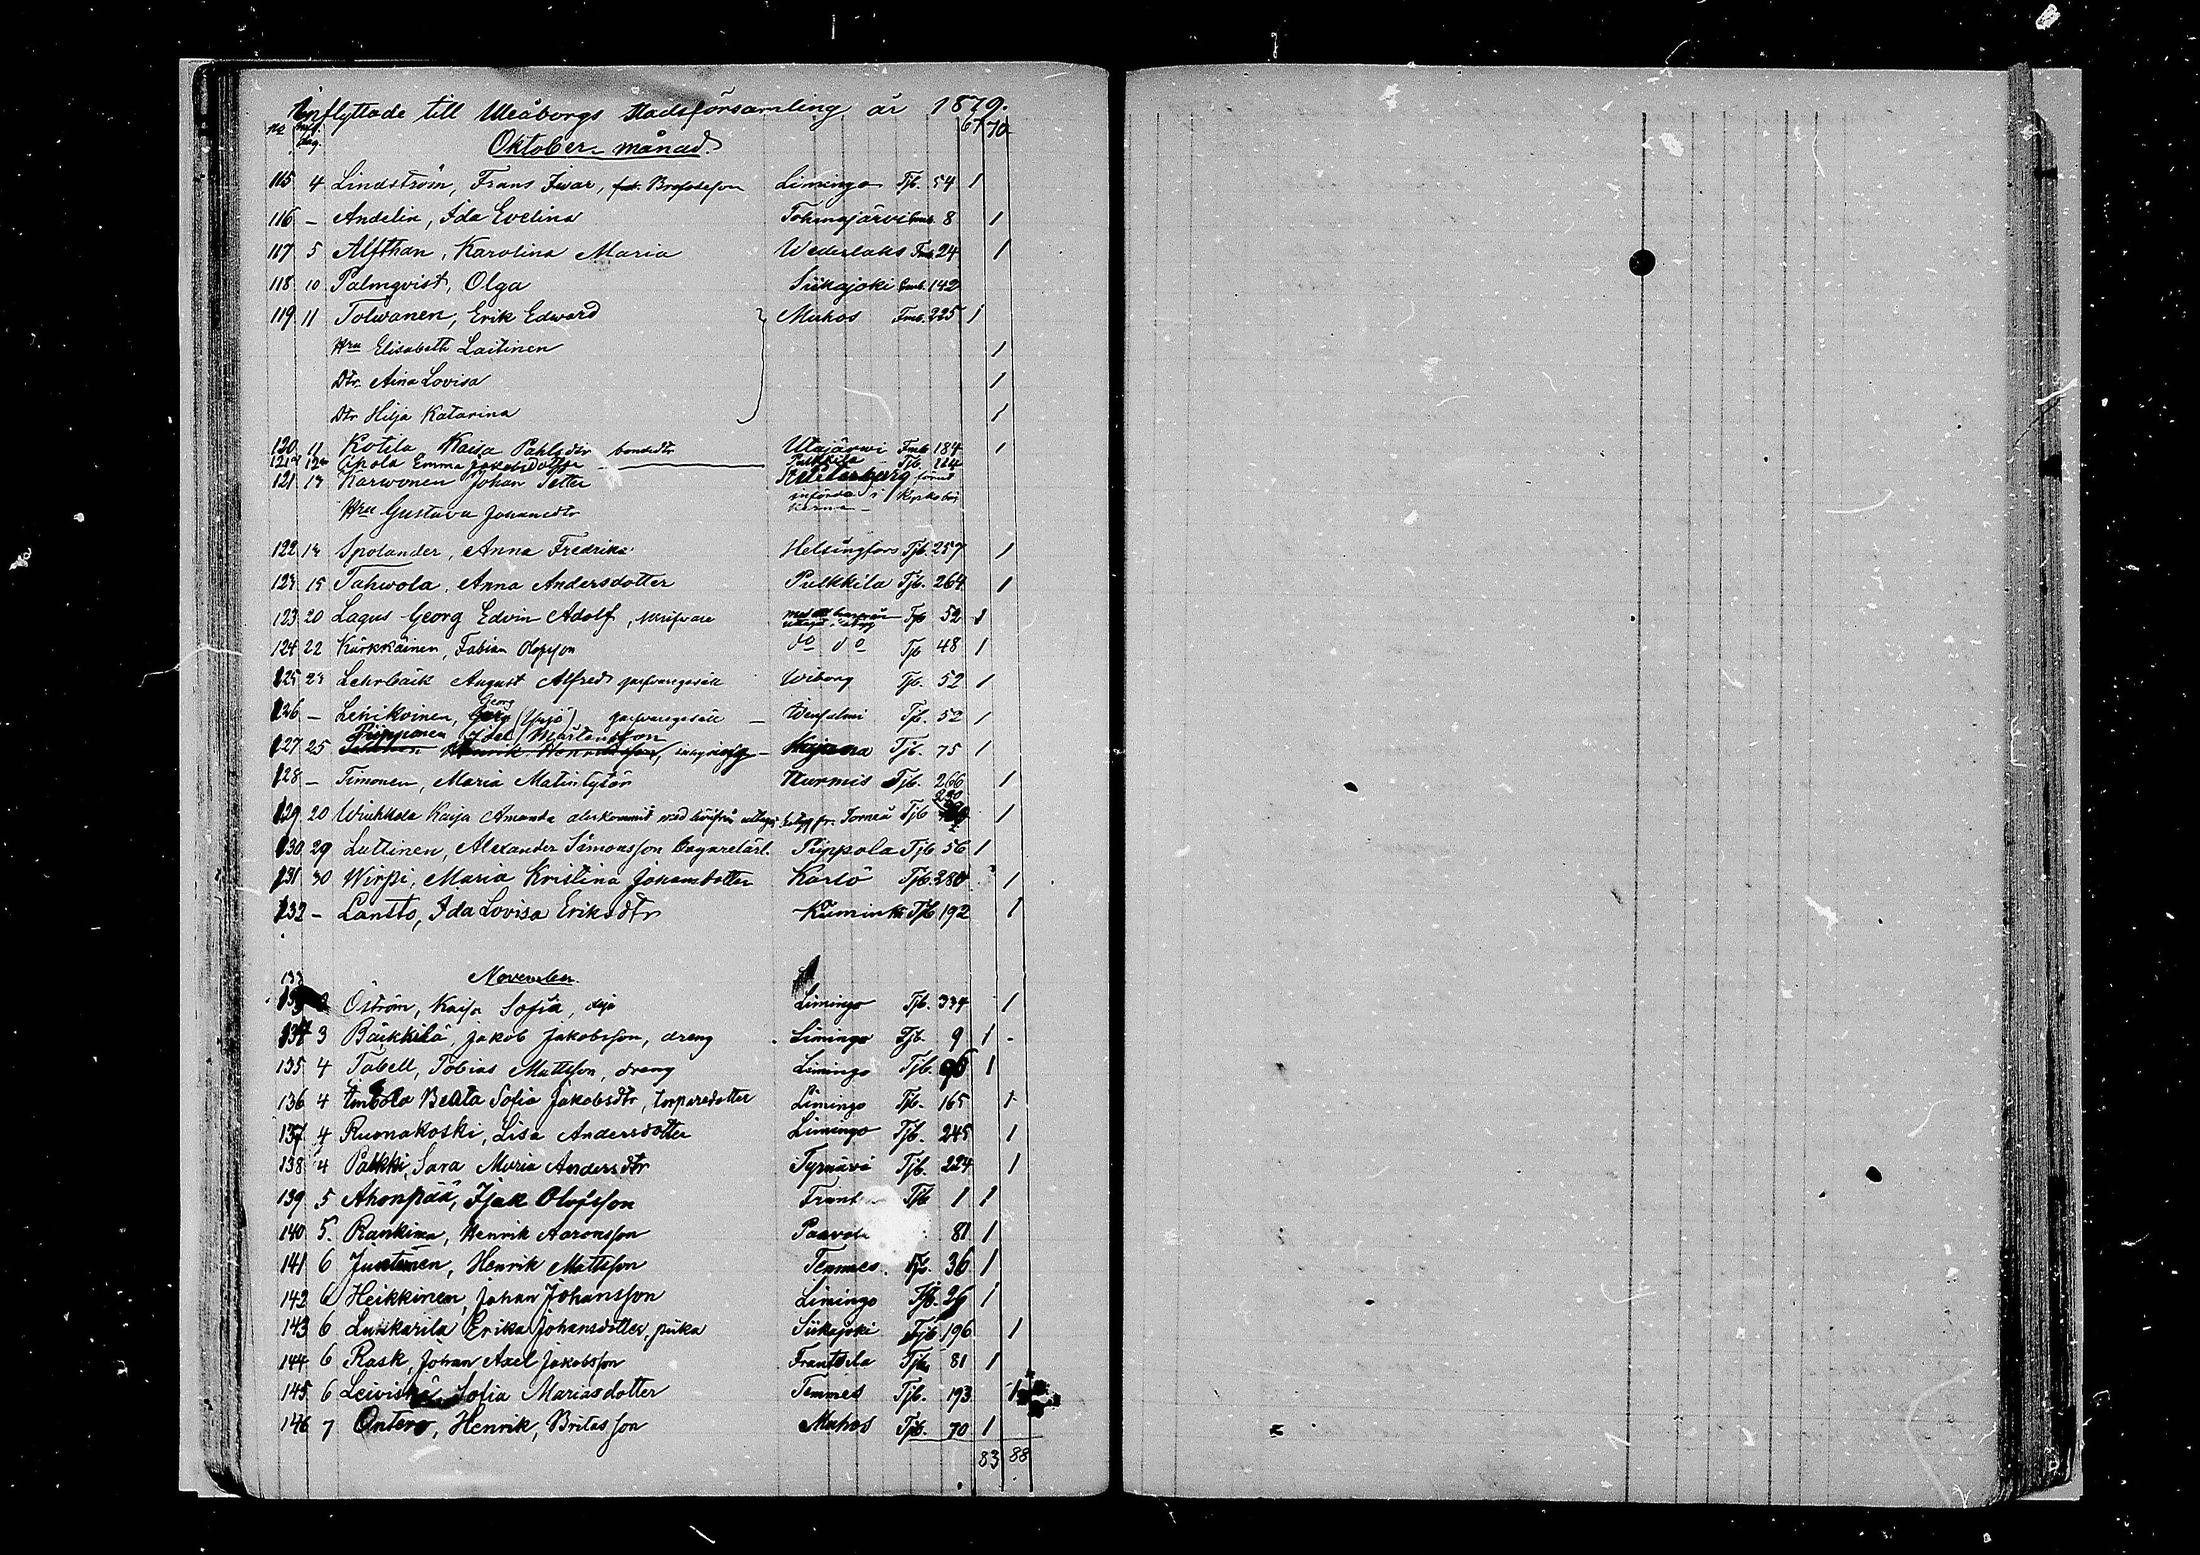 Inflyttade till Uleåborgs stadsförsamling år 1879.
No dag. 67 70
Oktober månad.
115 4 Lindström, Frans Iwar, Limingo Tjb. 54 1
116 - Andelin, Ida Evelina Tohmajärvi Fmb 8 1
117 5 Alfthan, Karolina Maria Wederlaks Fmb 24 1
118 10 Palmqvist, Olga Siikajoki Fmb. 142
119 11 Tolwanen, Erik Edward Muhos Fmb. 225 1
Hru Elisabeth Laitinen 1
Dtr. Aina Lovisa 1
Dtr Hilja Katarina 1
120 11 Kotila Kaisa Pahlsdtr bondedtr Utajärwi Fmb 184 1
Emma Jakobsdotter Pulkkila Tjb. 224
121 13 Karwonen Johan Petter St Petersburg förut
införda i Kyrkoböc
kerna -
Hru Gustava Johansdtr
122 14 Spolander, Anna Fredrika Helsingfors Tjb. 257 1
123 15 Tahwola, Anna Andersdotter Pulkkila Tjb. 264 1
123 20 Lagus Georg Edvin Adolf, Tjb 52 1
124 22 Kärkkäinen, Fabian Olofsson do do Tjb 48 1
125 23 Lehrbäck August Alfred garfvaregesäll Wiborg Tjb. 52 1
126 - Georg (Yrjö) garfvaregesäll - Idensalmi Tjb. 52 1
Piipponen Idel Mårtensson
127 25 Kajana Tjb. 75 1
128 - Timonen, Maria Matintytär Nurmis Tjb. 266 1
220
129 20 Kaisa Amanda återkommit med härifrån uttaget betyg fr. Torneå Tjb 1
130 29 Luttinen, Alexander Simonsson Bagarelärl. Piippola Tjb 56 1
131 30 Wirpi, Maria Kristina Johansdotter Karlö Tjb. 280 1
132 - Lansto, Ida Lovisa Eriksdtr Kiiminki Tjb 192 1
133 November
Öström, Kaisa Sofia, Limingo Tjb. 334 1
134 3 Bäckkilä, Jakob Jakobsson, dreng Limingo Tjb. 9 1
135 4 Tabell, Tobias Mattsson, dreng Limingo Tjb. 1
136 4 Beata Sofia Jakobsdtr, torparedotter Limingo Tjb. 165 1
137 4 Ruonakoski, Lisa Andersdotter Limingo Tjb. 245 1
138 4 Palkki, Sara Maria Andersdtr Tyrnävä Tjb. 224 1
139 5 Ahonpää, Isak Olofsson Frants Tjb 1 1
140 5. Rankinen, Henrik Aaronsson Paavola 81 1
141 6 Juntinen, Henrik Mattsson Temmes Tjb. 36 1
142 6 Heikkinen, Johan Johansson Limingo Tjb. 26 1
143 6 Lukkarila Erika Johansdotter, piika Siikajoki Tjb 196 1
144 6 Rask, Johan Axel Jakobsson Frantsila Tjb 81 1
145 6 Leiviskä Sofia Mariasdotter Temmes Tjb. 193 1
146 7 Ontero, Henrik, Britasson Muhos Tjb. 70 1
83 88